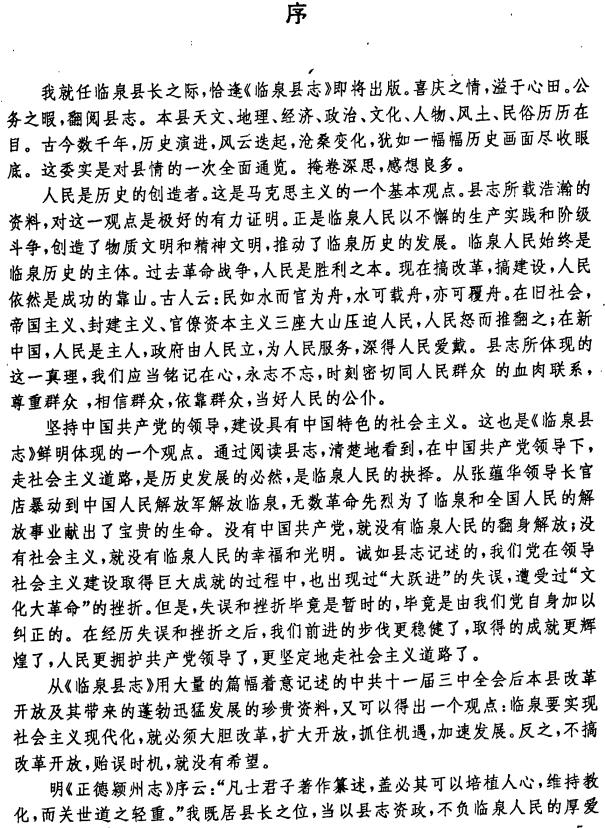 序
我就任临泉县长之际,恰逢《临泉县志》即将出版。喜庆之情,溢于心田。公
务之暇,翻阅县志。本县天文、地理、经济、政治、文化、人物、风土、民俗历历在
目。古今数千年,历史演进,风云迭起,沧桑变化,犹如一幅幅历史画面尽收眼
底。这委实是对县情的一次全面通览。掩卷深思,感想良多。
人民是历史的创造者。这是马克思主义的一个基本观点。县志所载浩瀚的
资料,对这一观点是极好的有力证明。正是临泉人民以不懈的生产实践和阶级
斗争,创造了物质文明和精神文明,推动了临泉历史的发展。临泉人民始终是
临泉历史的主体。过去革命战争,人民是胜利之本。现在搞改革,搞建设,人民
依然是成功的靠山。古人云:民如水而官为舟,水可载舟,亦可覆舟。在旧社会,
帝国主义、封建主义、官僚资本主义三座大山压迫人民,人民怒而推翻之;在新
中国,人民是主人,政府由人民立,为人民服务,深得人民爱戴。县志所体现的
这一真理,我们应当铭记在心,永志不忘,时刻密切同人民群众 的血肉联系,
尊重群众 ,相信群众,依靠群众,当好人民的公仆。
坚持中国共产党的领导,建设具有中国特色的社会主义。这也是《临泉县
志》鲜明体现的一个观点。通过阅读县志,清楚地看到,在中国共产党领导下,
走社会主义道路,是历史发展的必然,是临泉人民的抉择。从张蕴华领导长官
店暴动到中国人民解放军解放临泉,无数革命先烈为了临泉和全国人民的解
放事业献出了宝贵的生命。没有中国共产党,就没有临泉人民的翻身解放;没
有社会主义,就没有临泉人民的幸福和光明。诚如县志记述的,我们党在领导
社会主义建设取得巨大成就的过程中,也出现过“大跃进”的失误,遭受过“文
化大革命”的挫折。但是,失误和挫折毕竟是暂时的,毕竟是由我们党自身加以
纠正的。在经历失误和挫折之后,我们前进的步伐更稳健了,取得的成就更辉
煌了,人民更拥护共产党领导了,更坚定地走社会主义道路了。
从《临泉县志》用大量的篇幅着意记述的中共十一届三中全会后本县改革
开放及其带来的蓬勃迅猛发展的珍贵资料,又可以得出一个观点:临泉要实现
社会主义现代化,就必须大胆改革,扩大开放,抓住机遇,加速发展。反之,不搞
改革开放,贻误时机,就没有希望。
明《正德颍州志》序云:“凡士君子著作纂述,盖必其可以培植人心,维持教
化,而关世道之轻重。”我既居县长之位,当以县志资政,不负临泉人民的厚爱